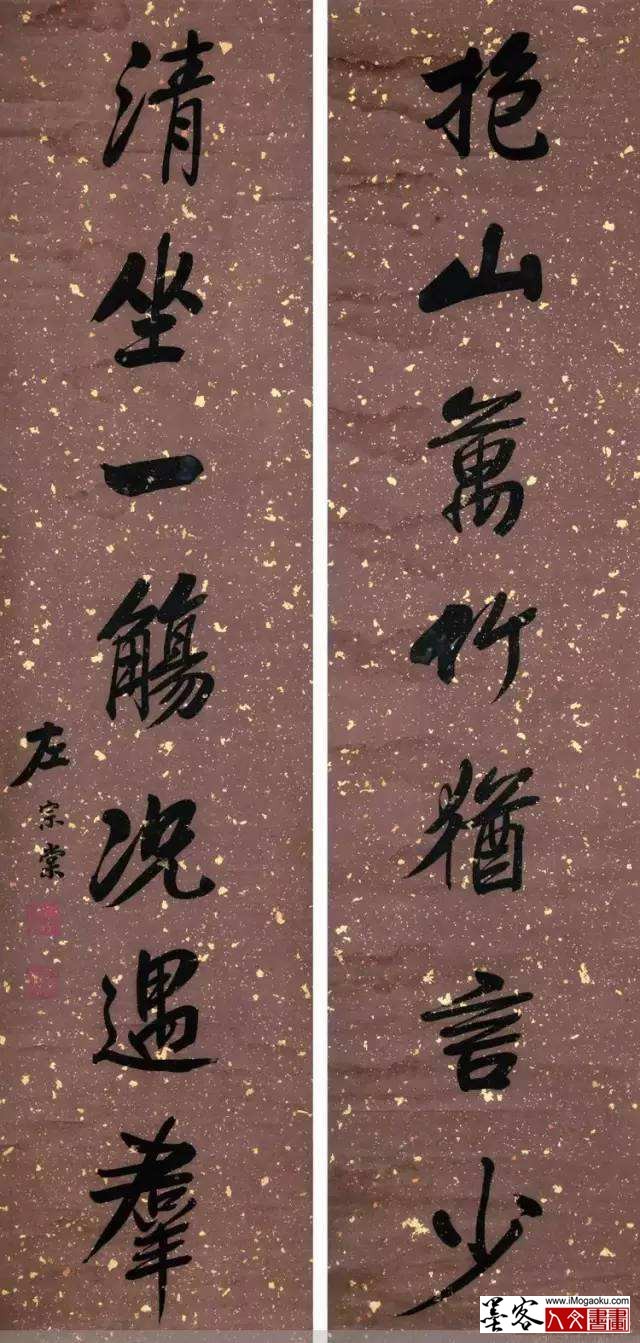 抱山萬竹猶言少
清坐一觴况遇羣
左宗棠
墨客
www.iMogaoku.com
人文書畫